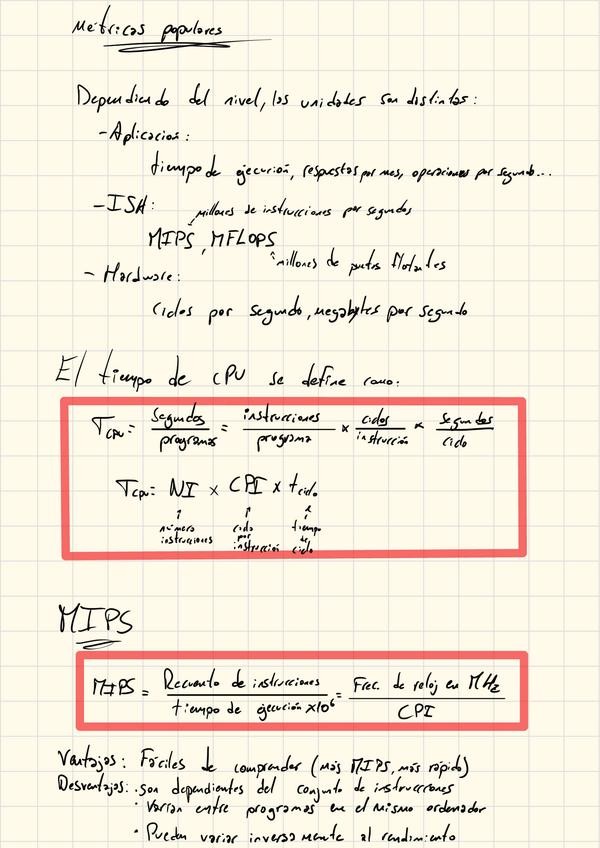 Métricas populares
Dependiendo del nivel, las unidades son distintas:
- Aplicación:
tiempo de ejecución, respuestas por mes, operaciones por segundo...
- ISA:
millones de instrucciones por segundos
MIPS, MFLOPS
millones de puntos flotantes
- Hardware:
Ciclos por segundo, megabytes por segundo
El tiempo de CPU se define como:
Tcpu = segundos/programas = instrucciones/programa × ciclos/instrucción × segundos/ciclo
Tcpu = NI × CPI × tciclo
↑ ↑ ↑
número ciclo tiempo
instrucciones por de
instrucción ciclo
MIPS
MIPS = Recuento de instrucciones/tiempo de ejecución x10⁶ = Frec. de reloj en MHz/CPI
Ventajas: Fáciles de comprender (más MIPS, más rápido)
Desventajas: · son dependientes del conjunto de instrucciones
· Varían entre programas en el mismo ordenador
· Pueden variar inversamente al rendimiento